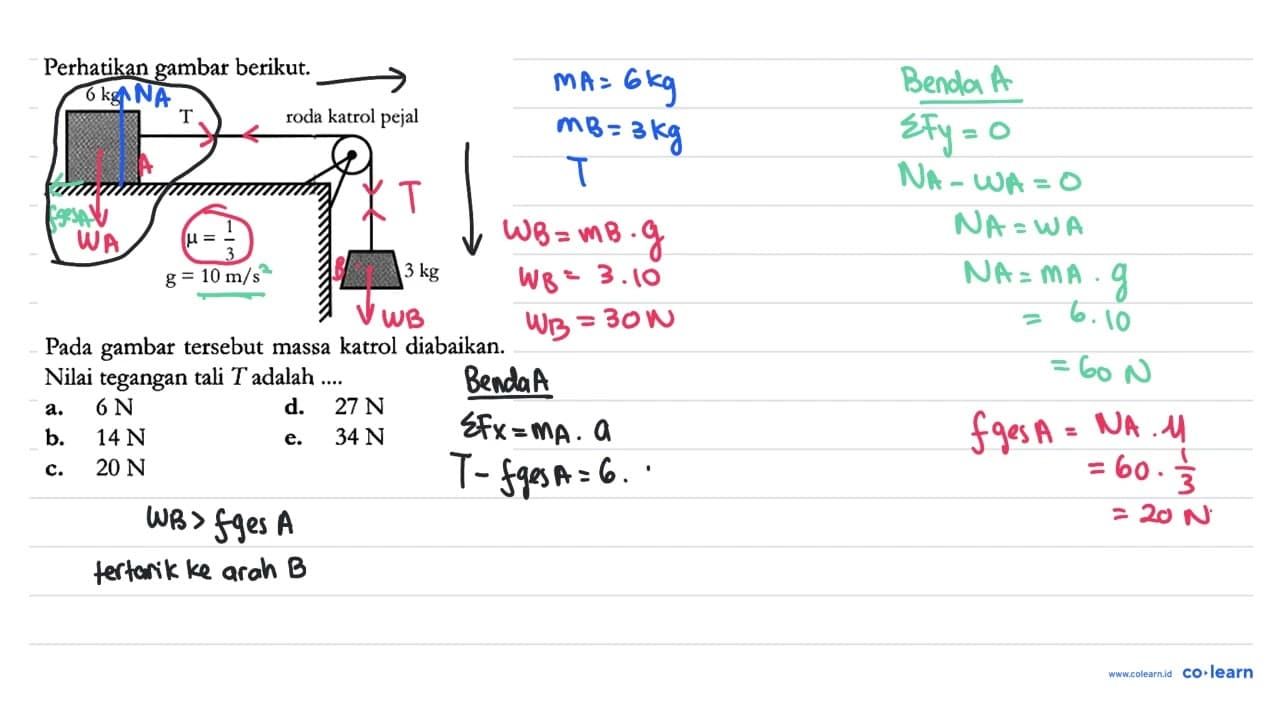 Perhatikan gambar berikut.
6 kg
NA
T
roda katrol pejal
A
T
fgesA
WA
μ = 1/3
g = 10 m/s²
B
3 kg
WB
Pada gambar tersebut massa katrol diabaikan.
Nilai tegangan tali T adalah ....
a. 6 N
b. 14 N
c. 20 N
d. 27 N
e. 34 N
WB > fges A
tertarik ke arah B
mA = 6 kg
mB = 3 kg
T
WB = mB . g
WB = 3.10
WB = 30 N
Benda A
ΣFx = mA . a
T - fges A = 6 .
Benda A
ΣFy = 0
NA - WA = 0
NA = WA
NA = mA . g
= 6.10
= 60 N
fges A = NA . μ
= 60 . 1/3
= 20 N
www.colearn.id co·learn